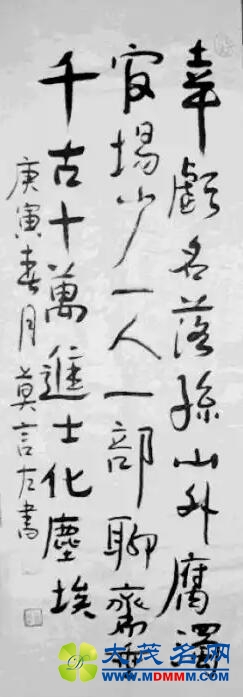 幸虧名落孫山外腐濁
官場少一人一部聊齋垂
千古十萬進士化塵埃
庚寅春月莫言左書
大茂名网
WWW.MDMMM.COM